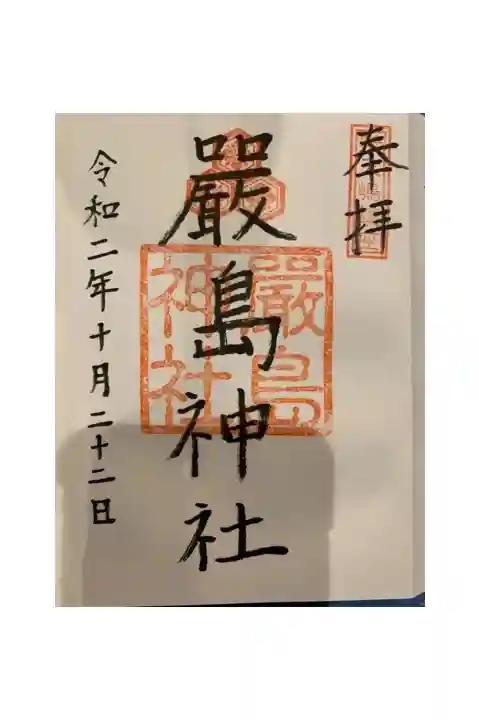 奉拝
嚴島神社
嚴島
神社
令和二年十月二十二日